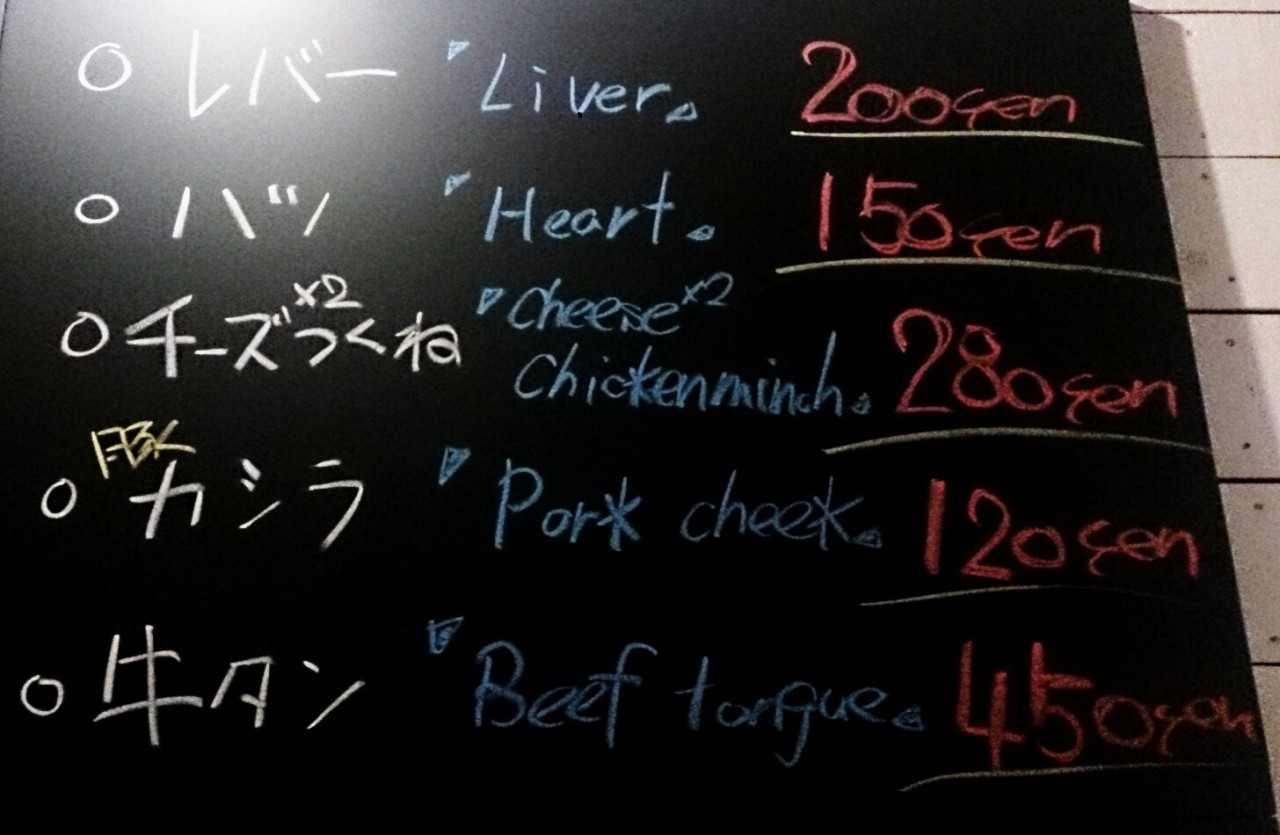 ○ レバー Liver 200yen
○ ハツ Heart 150yen
○ チーズ×2つくね Cheese×2
Chickenminch 280yen
○ 豚カシラ Pork cheek 120yen
○ 牛タン Beef tongue 450yen